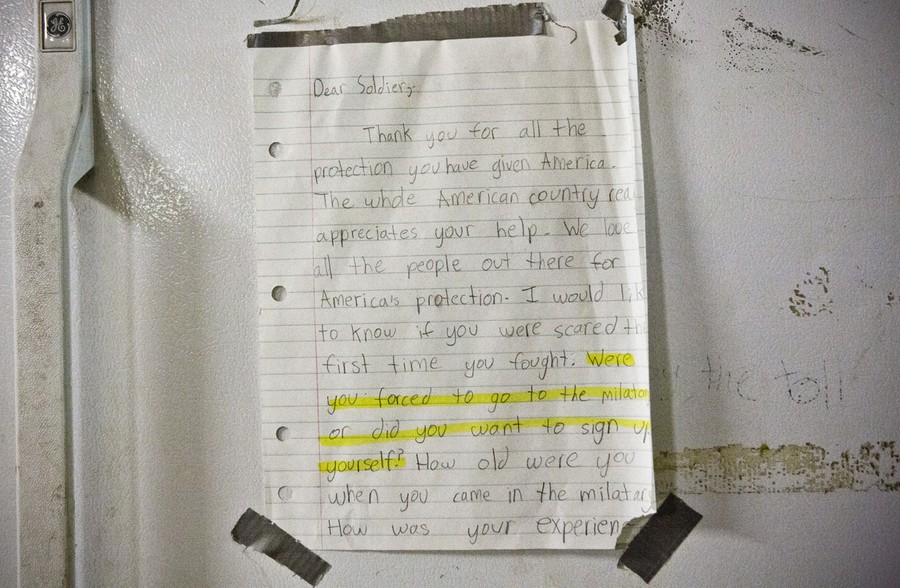 GE
Dear Soldier,
Thank you for all the
protection you have given America.
The whole American country rea
appreciates your help. We love
all the people out there for
America's protection. I would lik
to know if you were scared th
first time you fought. Were
you forced to go to the milatar
or did you want to sign up
yourself? How old were you
when you came in the milatary
How was your experien
the toll